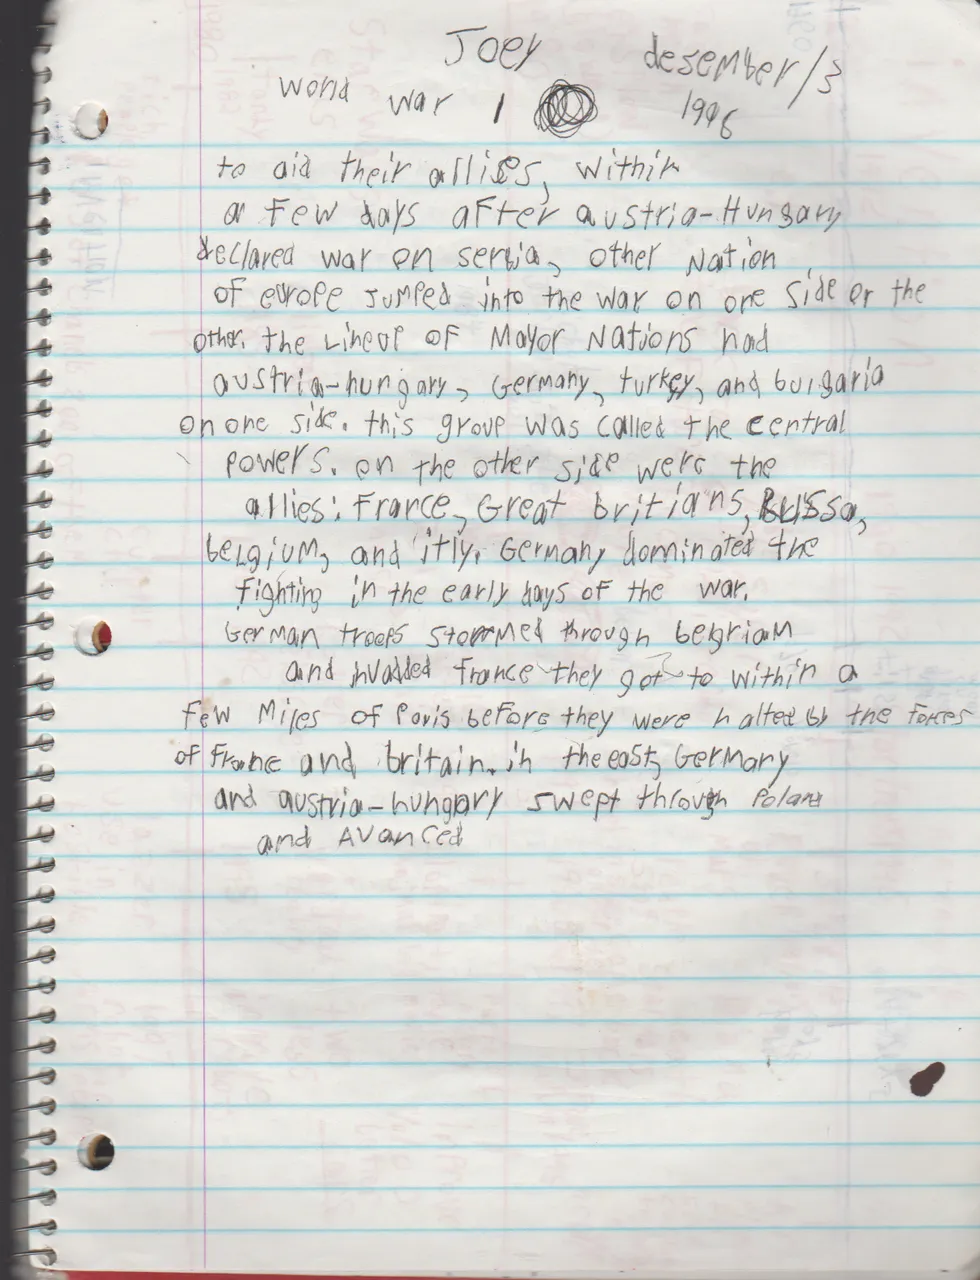 Joey desember/3
world war 1 1996
to aid their allises, within
a few days after austria-Hungary
declared war on serbia, other Nation
of europe Jumped into the war on one side or the
other. the Lineup of Mayor Nations had
austria-hungary, Germany, turkey, and bulgaria
on one side. this group was called the central
powers. on the other side were the
allies: France, Great britians, Russa,
belgium, and itly. Germany dominated the
fighting in the early days of the war.
German troops stormed through belgriam
and invadded france they got to within a
few Miles of Paris before they were halted by the forces
of france and britain. in the east, Germany
and austria-hungary swept through Poland
and Avanced